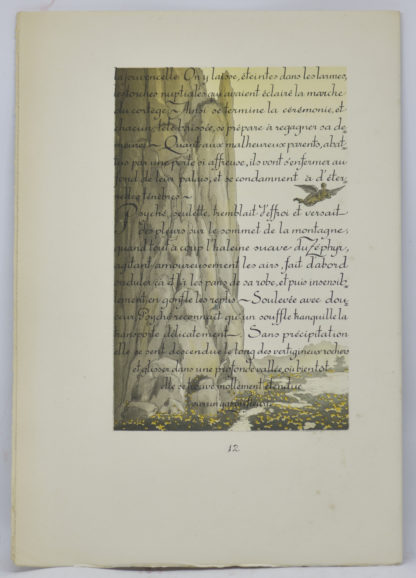 la jouvencelle. On y laisse, éteintes dans les larmes,
les torches nuptiales qui avaient éclairé la marche
du cortège ~ Ainsi se termine la cérémonie, et
chacun, tête baissée, se prépare à regagner sa de-
meure ~ Quant aux malheureux parents, abat-
tus par une perte si affreuse, ils vont s'enfermer au
fond de leur palais, et se condamnent à d'éter-
nelles ténèbres ~
Psyché, seulette, tremblait d'effroi et versait
des pleurs sur le sommet de la montagne,
quand tout à coup l'haleine suave du Zéphyr,
agitant amoureusement les airs, fait d'abord
onduler çà et là les pans de sa robe, et puis insensib-
lement en gonfle les replis ~ Soulevée avec dou-
ceur Psyché reconnaît qu'un souffle tranquille la
transporte délicatement ~ Sans précipitation
elle se sent descendue le long des vertigineux rochers
et glisser dans une profonde vallée, où bientôt
elle se trouve mollement étendue
sur un gazon fleuri
12